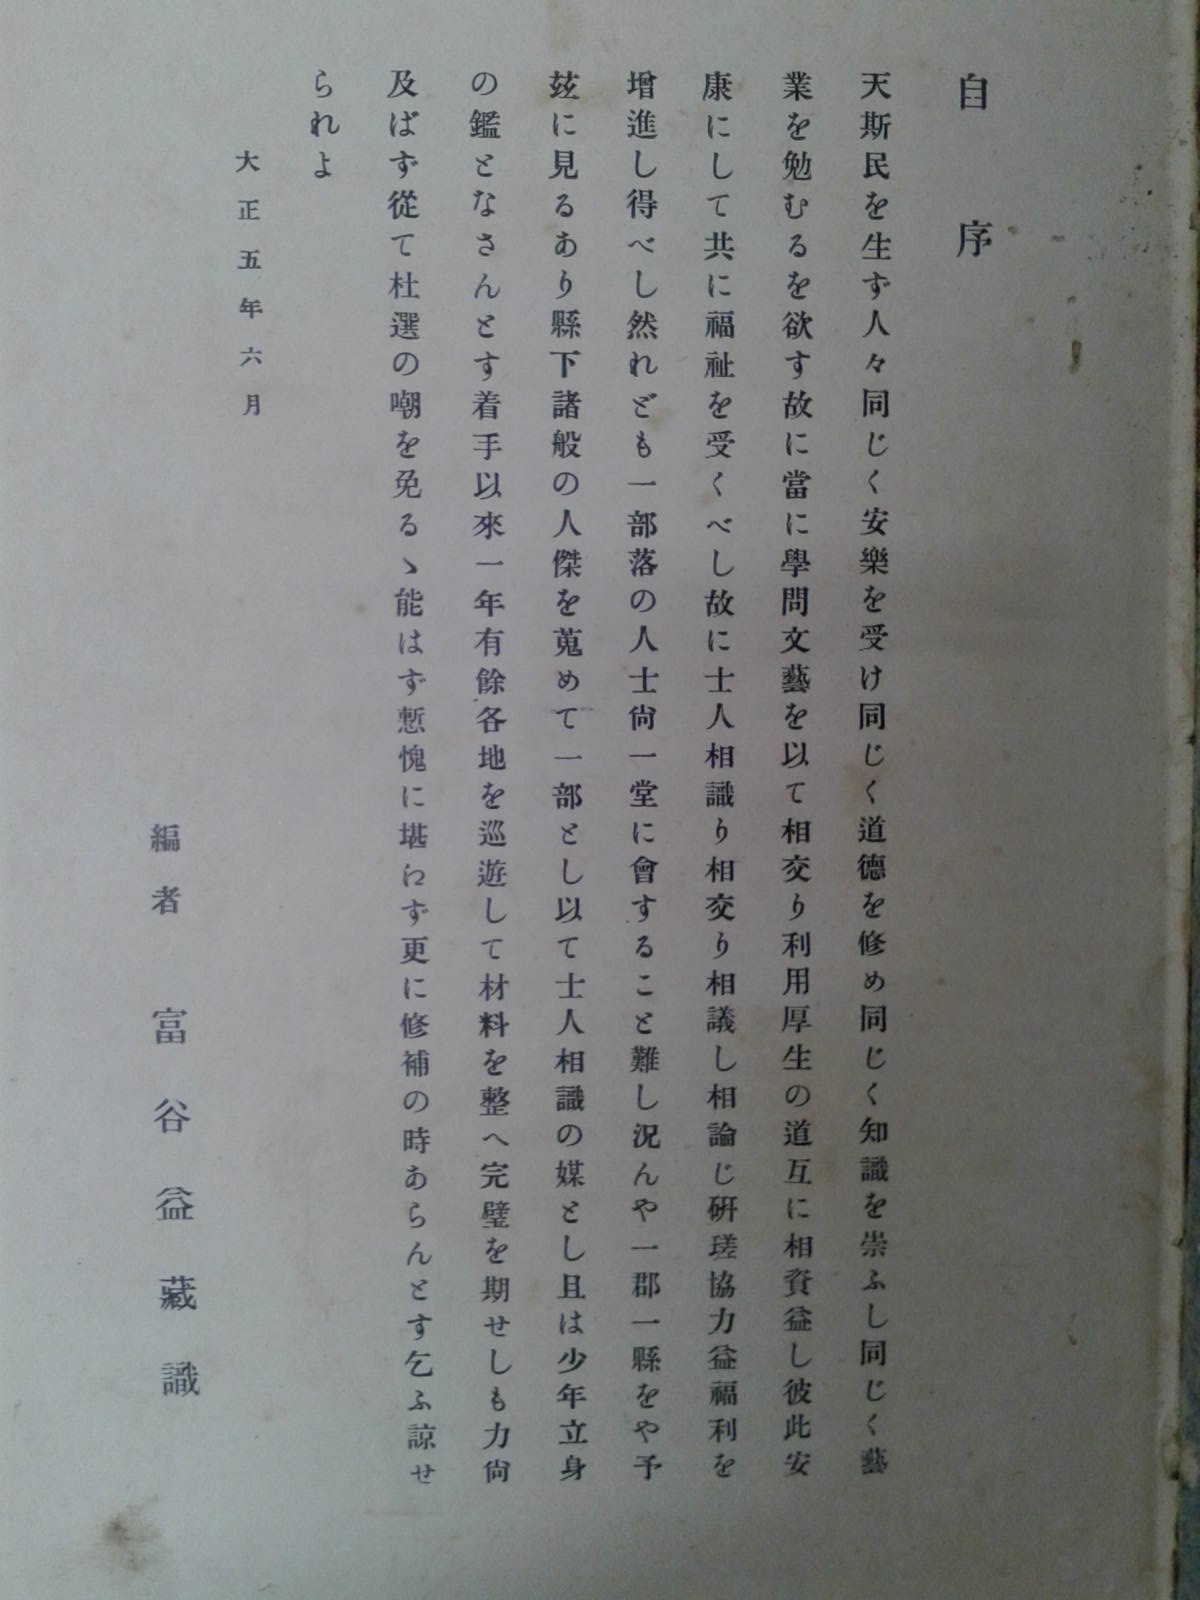 自序
天斯民を生ず人々同じく安樂を受け同じく道德を修め同じく知識を崇ふし同じく藝
業を勉むるを欲す故に當に學問文藝を以て相交り利用厚生の道互に相資益し彼此安
康にして共に福祉を受くべし故に士人相識り相交り相議し相論じ研瑳協力益福利を
增進し得べし然れども一部落の人士尙一堂に會すること難し況んや一郡一縣をや予
玆に見るあり縣下諸般の人傑を蒐めて一部とし以て士人相識の媒とし且は少年立身
の鑑となさんとす着手以來一年有餘各地を巡遊して材料を整へ完璧を期せしも力尙
及ばず從て杜選の嘲を免るゝ能はず慙愧に堪えず更に修補の時あらんとす乞ふ諒せ
られよ
大正五年六月
編者 富谷益藏識